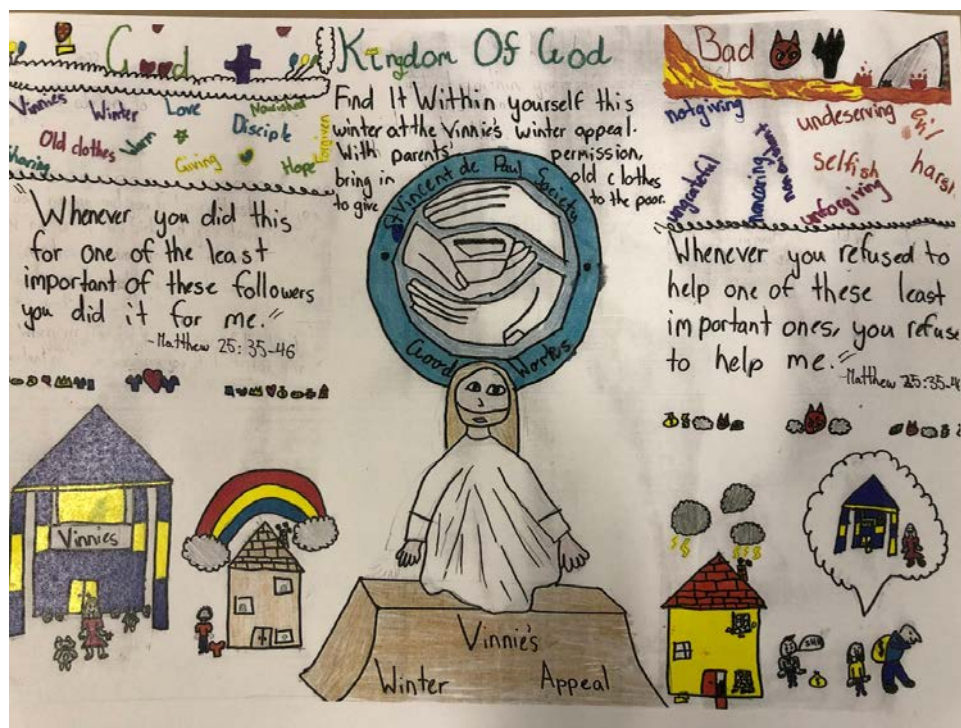 Good
Vinnies Winter Love Nourished
Old clothes Warm Disciple Forgiven
Sharing Giving Hope
"Whenever you did this
for one of the least
important of these followers
you did it for me."
-Matthew 25: 35-46
Vinnies
Kingdom Of God
Find It Within yourself this
winter at the Vinnie's winter appeal.
With parents' permission,
bring in old clothes
to give to the poor.
St Vincent de Paul Society
Good Works
Vinnie's
Winter Appeal
Bad
not giving undeserving evil
ungrateful selfish harsh
unforgiving
"Whenever you refused to
help one of these least
important ones, you refuse
to help me."
-Matthew 25:35-46